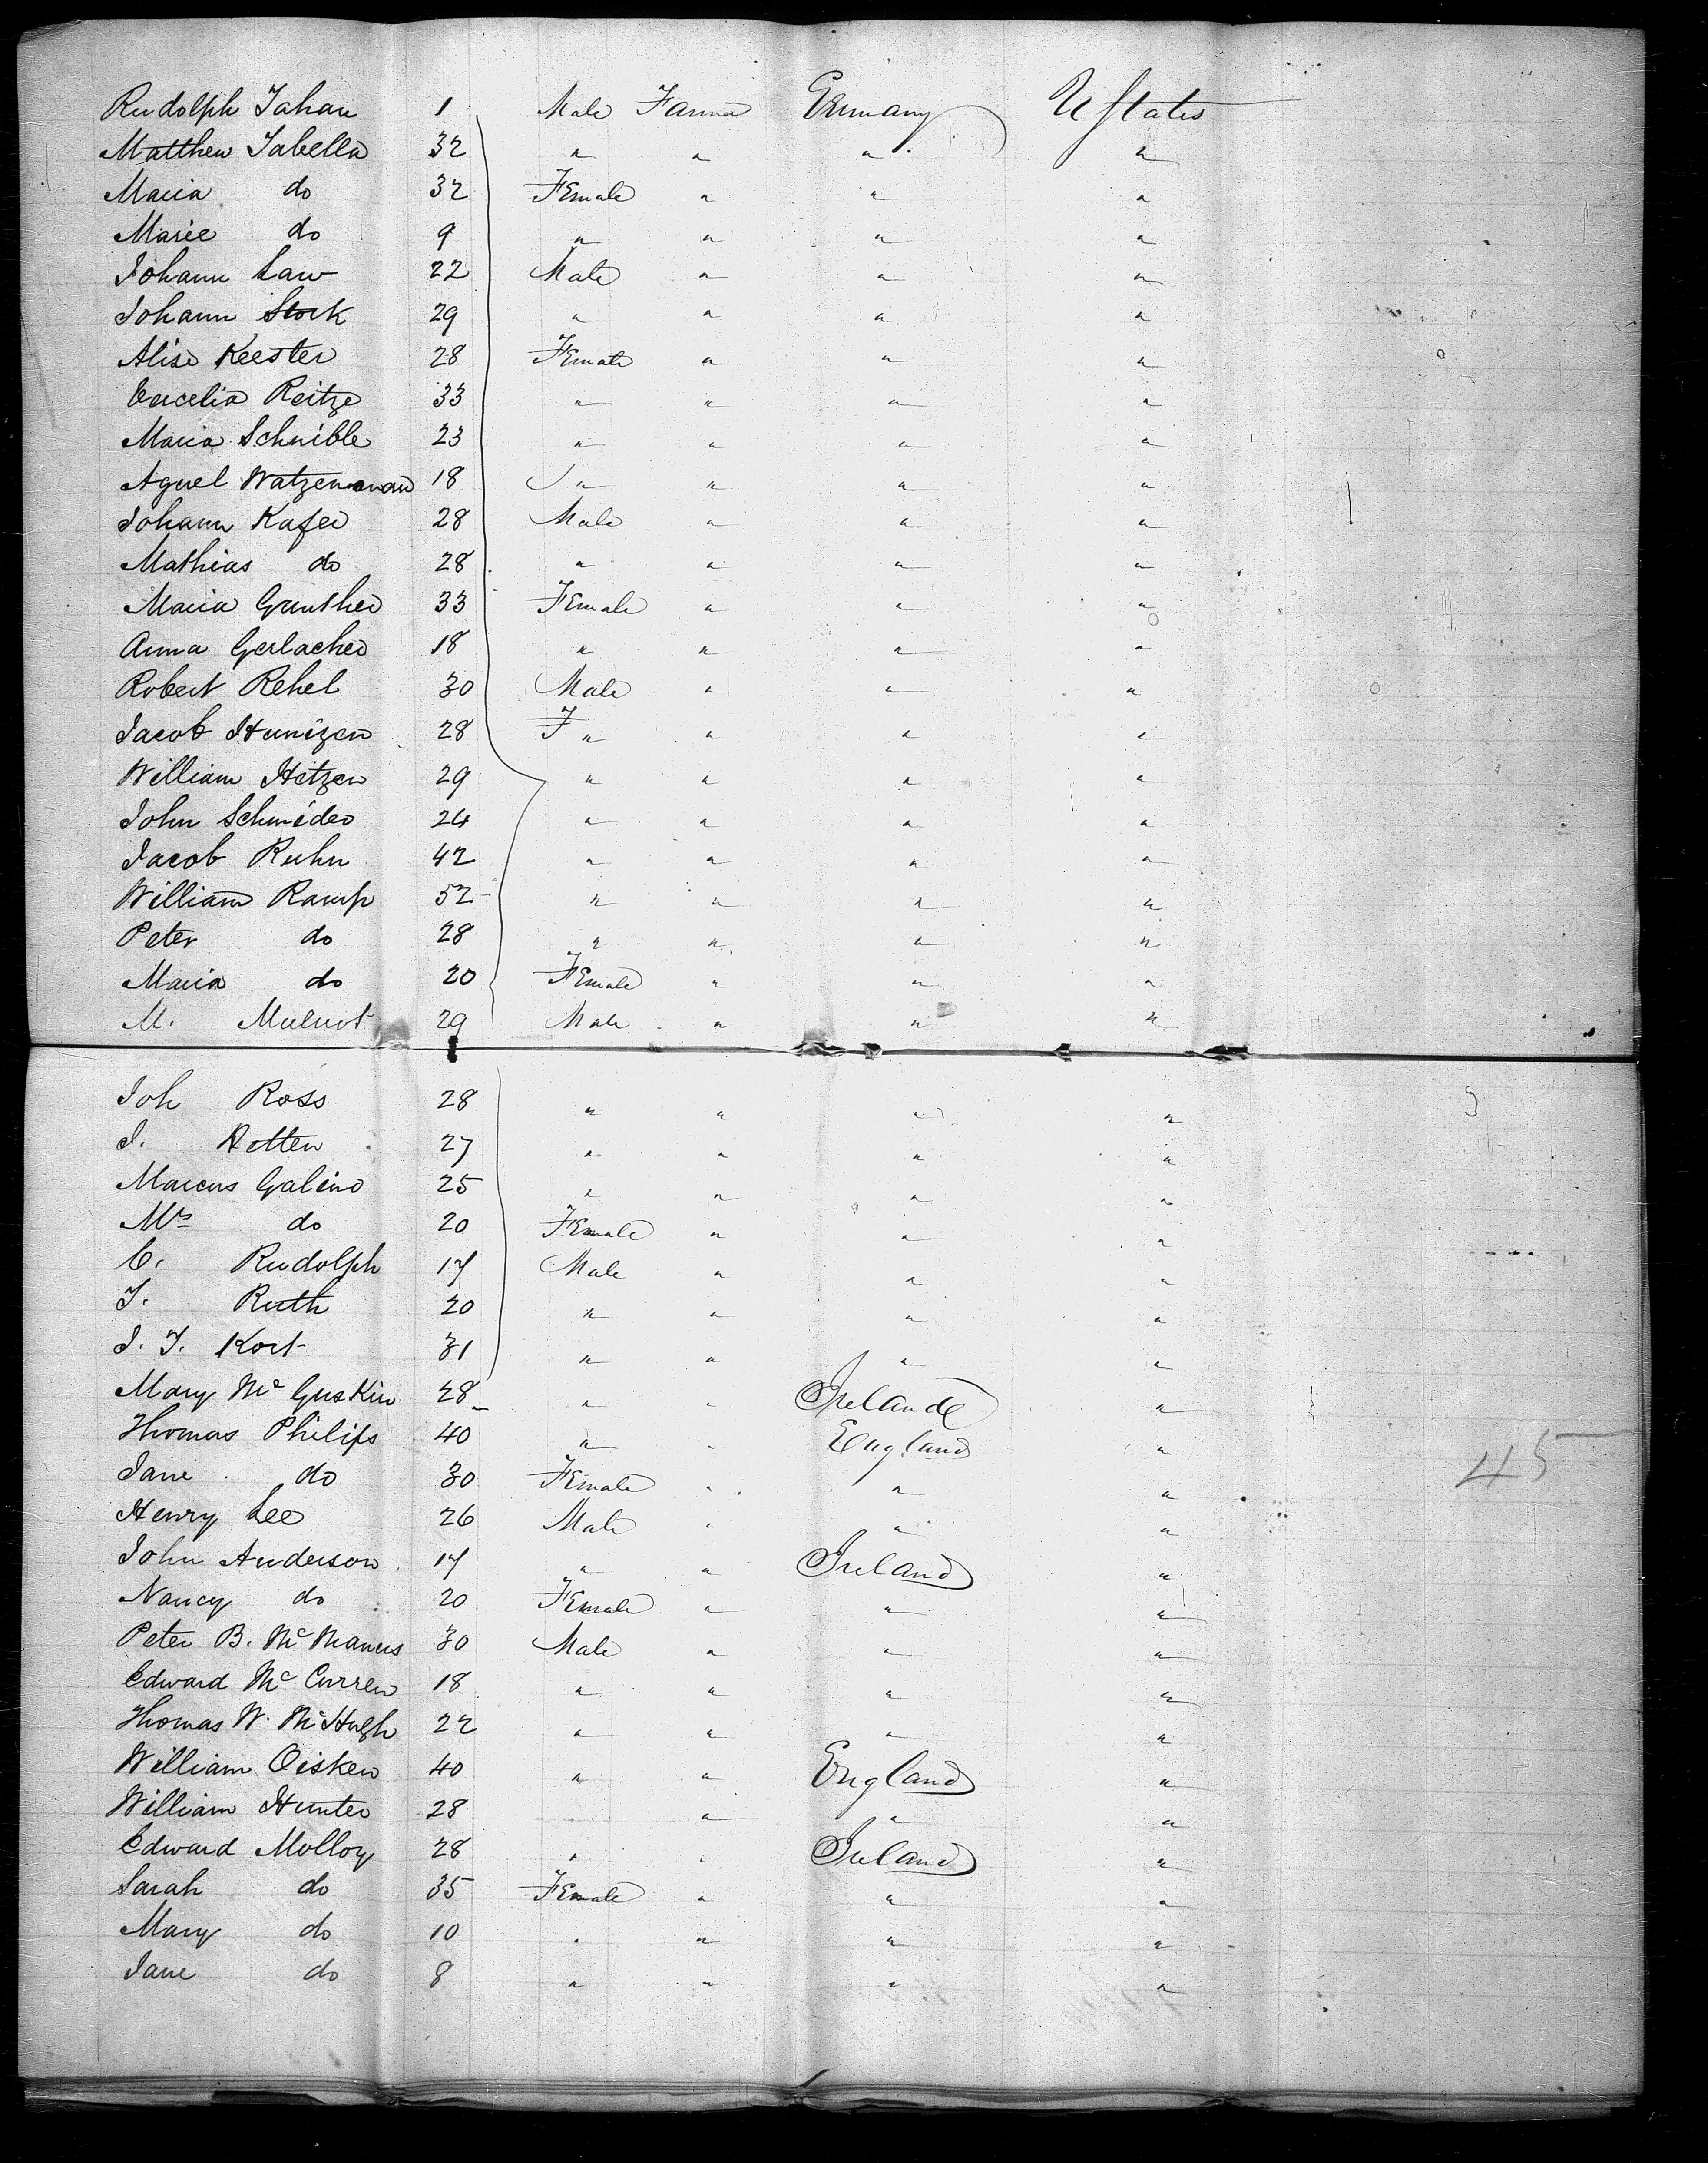 Rudolph Jahan 1 Male Farmer Germany U States
Matthew Jabella 32 " " " "
Maria do 32 Female " " "
Marie do 9 " " " "
Johann Law 22 Male " " "
Johann Stork 29 " " " "
Alise Keester 28 Female " " "
Reitze 33 " " " "
Maria Schnible 23 " " " "
Agnel Watzenmann 18 " " " "
Johann Kafer 28 Male " " "
Mathias do 28 " " " "
Maria Gunther 33 Female " " "
Anna Gerlacher 18 " " " "
Robert Rehel 30 Male " " "
Jacob Hunizen 28 F " " " "
William Hitzen 29 " " " "
John Schmider 24 " " " "
Jacob Ruhn 42 " " " "
William Ramp 52 " " " "
Peter do 28 " " " "
Maria do 20 Female " " "
M. Mulnot 29 Male " " "
Joh Ross 28 " " " "
J. 27 " " " "
Marcus Galino 25 " " " "
Mrs do 20 Female " " "
C. Rudolph 17 Male " " "
J. Ruth 20 " " " "
J. J. Kort 31 " " " "
Mary McGuskin 28 " " Ireland "
Thomas Philips 40 " " England "
Jane do 30 Female " " " 45
Henry Lee 26 Male " " "
John Anderson 17 " " Ireland "
Nancy do 20 Female " " "
Peter B. McManus 30 Male " " "
Edward McCurren 18 " " " "
Thomas W. McHugh 22 " " " "
William Oisken 40 " " England "
William Hunter 28 " " " "
Edward Molloy 28 " " Ireland "
Sarah do 35 Female " " "
Mary do 10 " " " "
Jane do 8 " " " "